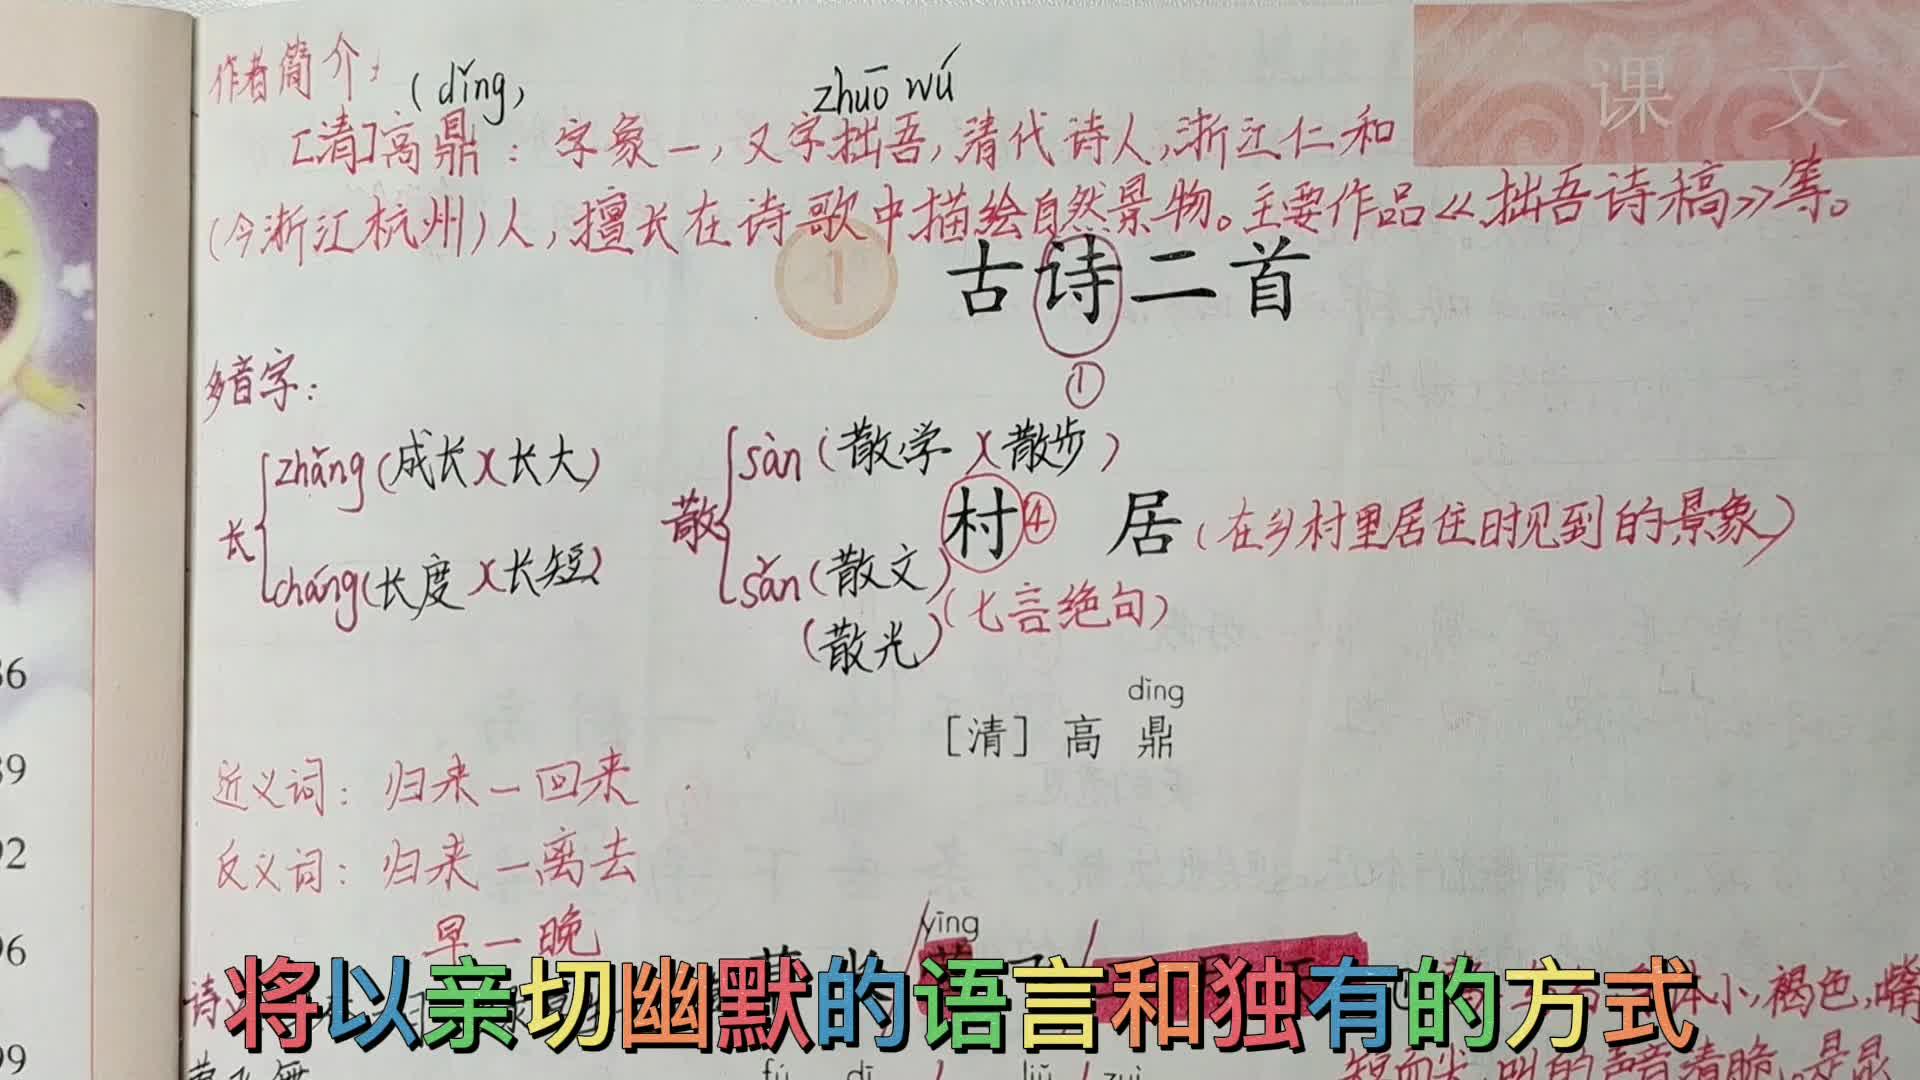 作者简介:
(dǐng)
zhuō wú
[清]高鼎:字象一,又字拙吾,清代诗人,浙江仁和
课 文
(今浙江杭州)人,擅长在诗歌中描绘自然景物。主要作品《拙吾诗稿》等。
1 古诗二首
①
多音字:
长 zhǎng(成长 X 长大)
cháng(长度 X 长短)
散 sàn(散学 X 散步)
sǎn(散文)
(散光)
村④ 居(在乡村里居住时见到的景象)
(七言绝句)
dǐng
[清] 高 鼎
近义词:归来—回来
反义词:归来—离去
早—晚
yīng
将以亲切幽默的语言和独有的方式
体小,褐色,嘴
短而尖,叫的声音清脆。是昆
fú dī liǔ zuì
36
39
92
96
99